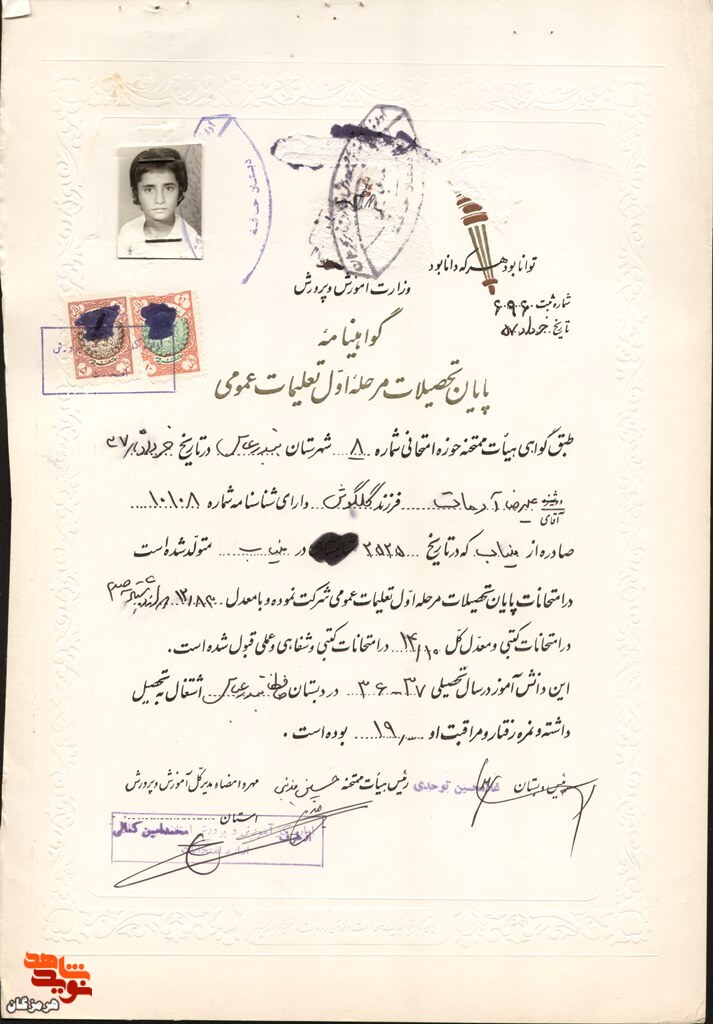 دبستان حافظ
توانا بود هر که دانا بود
وزارت آموزش و پرورش
شماره ثبت ۶۰۹۶۰
تاریخ خرداد ۵۷
گواهینامه
پایان تحصیلات مرحله اول تعلیمات عمومی
طبق گواهی هیأت ممتحنه حوزه امتحانی شماره ۸ شهرستان بندرعباس در تاریخ خرداد ۳۷
دوشیزه آقای علیرضا فرزند دارای شناسنامه شماره ۱۰۱۰۸
صادره از میناب که در تاریخ ۲۵۲۵ در میناب متولد شده است
در امتحانات پایان تحصیلات مرحله اول تعلیمات عمومی شرکت نموده و با معدل ۱۲/۸۳
در امتحانات کتبی و معدل کل ۱۴/۱۰ در امتحانات کتبی و شفاهی و عملی قبول شده است .
این دانش آموز در سال تحصیلی ۳۷-۳۶ در دبستان حافظ بندرعباس اشتغال به تحصیل
داشته و نمره رفتار و مراقبت او ۱۹ بوده است .
رئیس دبستان غلامحسین توحیدی رئیس هیأت ممتحنه حسین مهر و امضاء مدیر کل آموزش و پرورش
استان
محمدامین کمالی
شاهد
نوید
هرمزگان